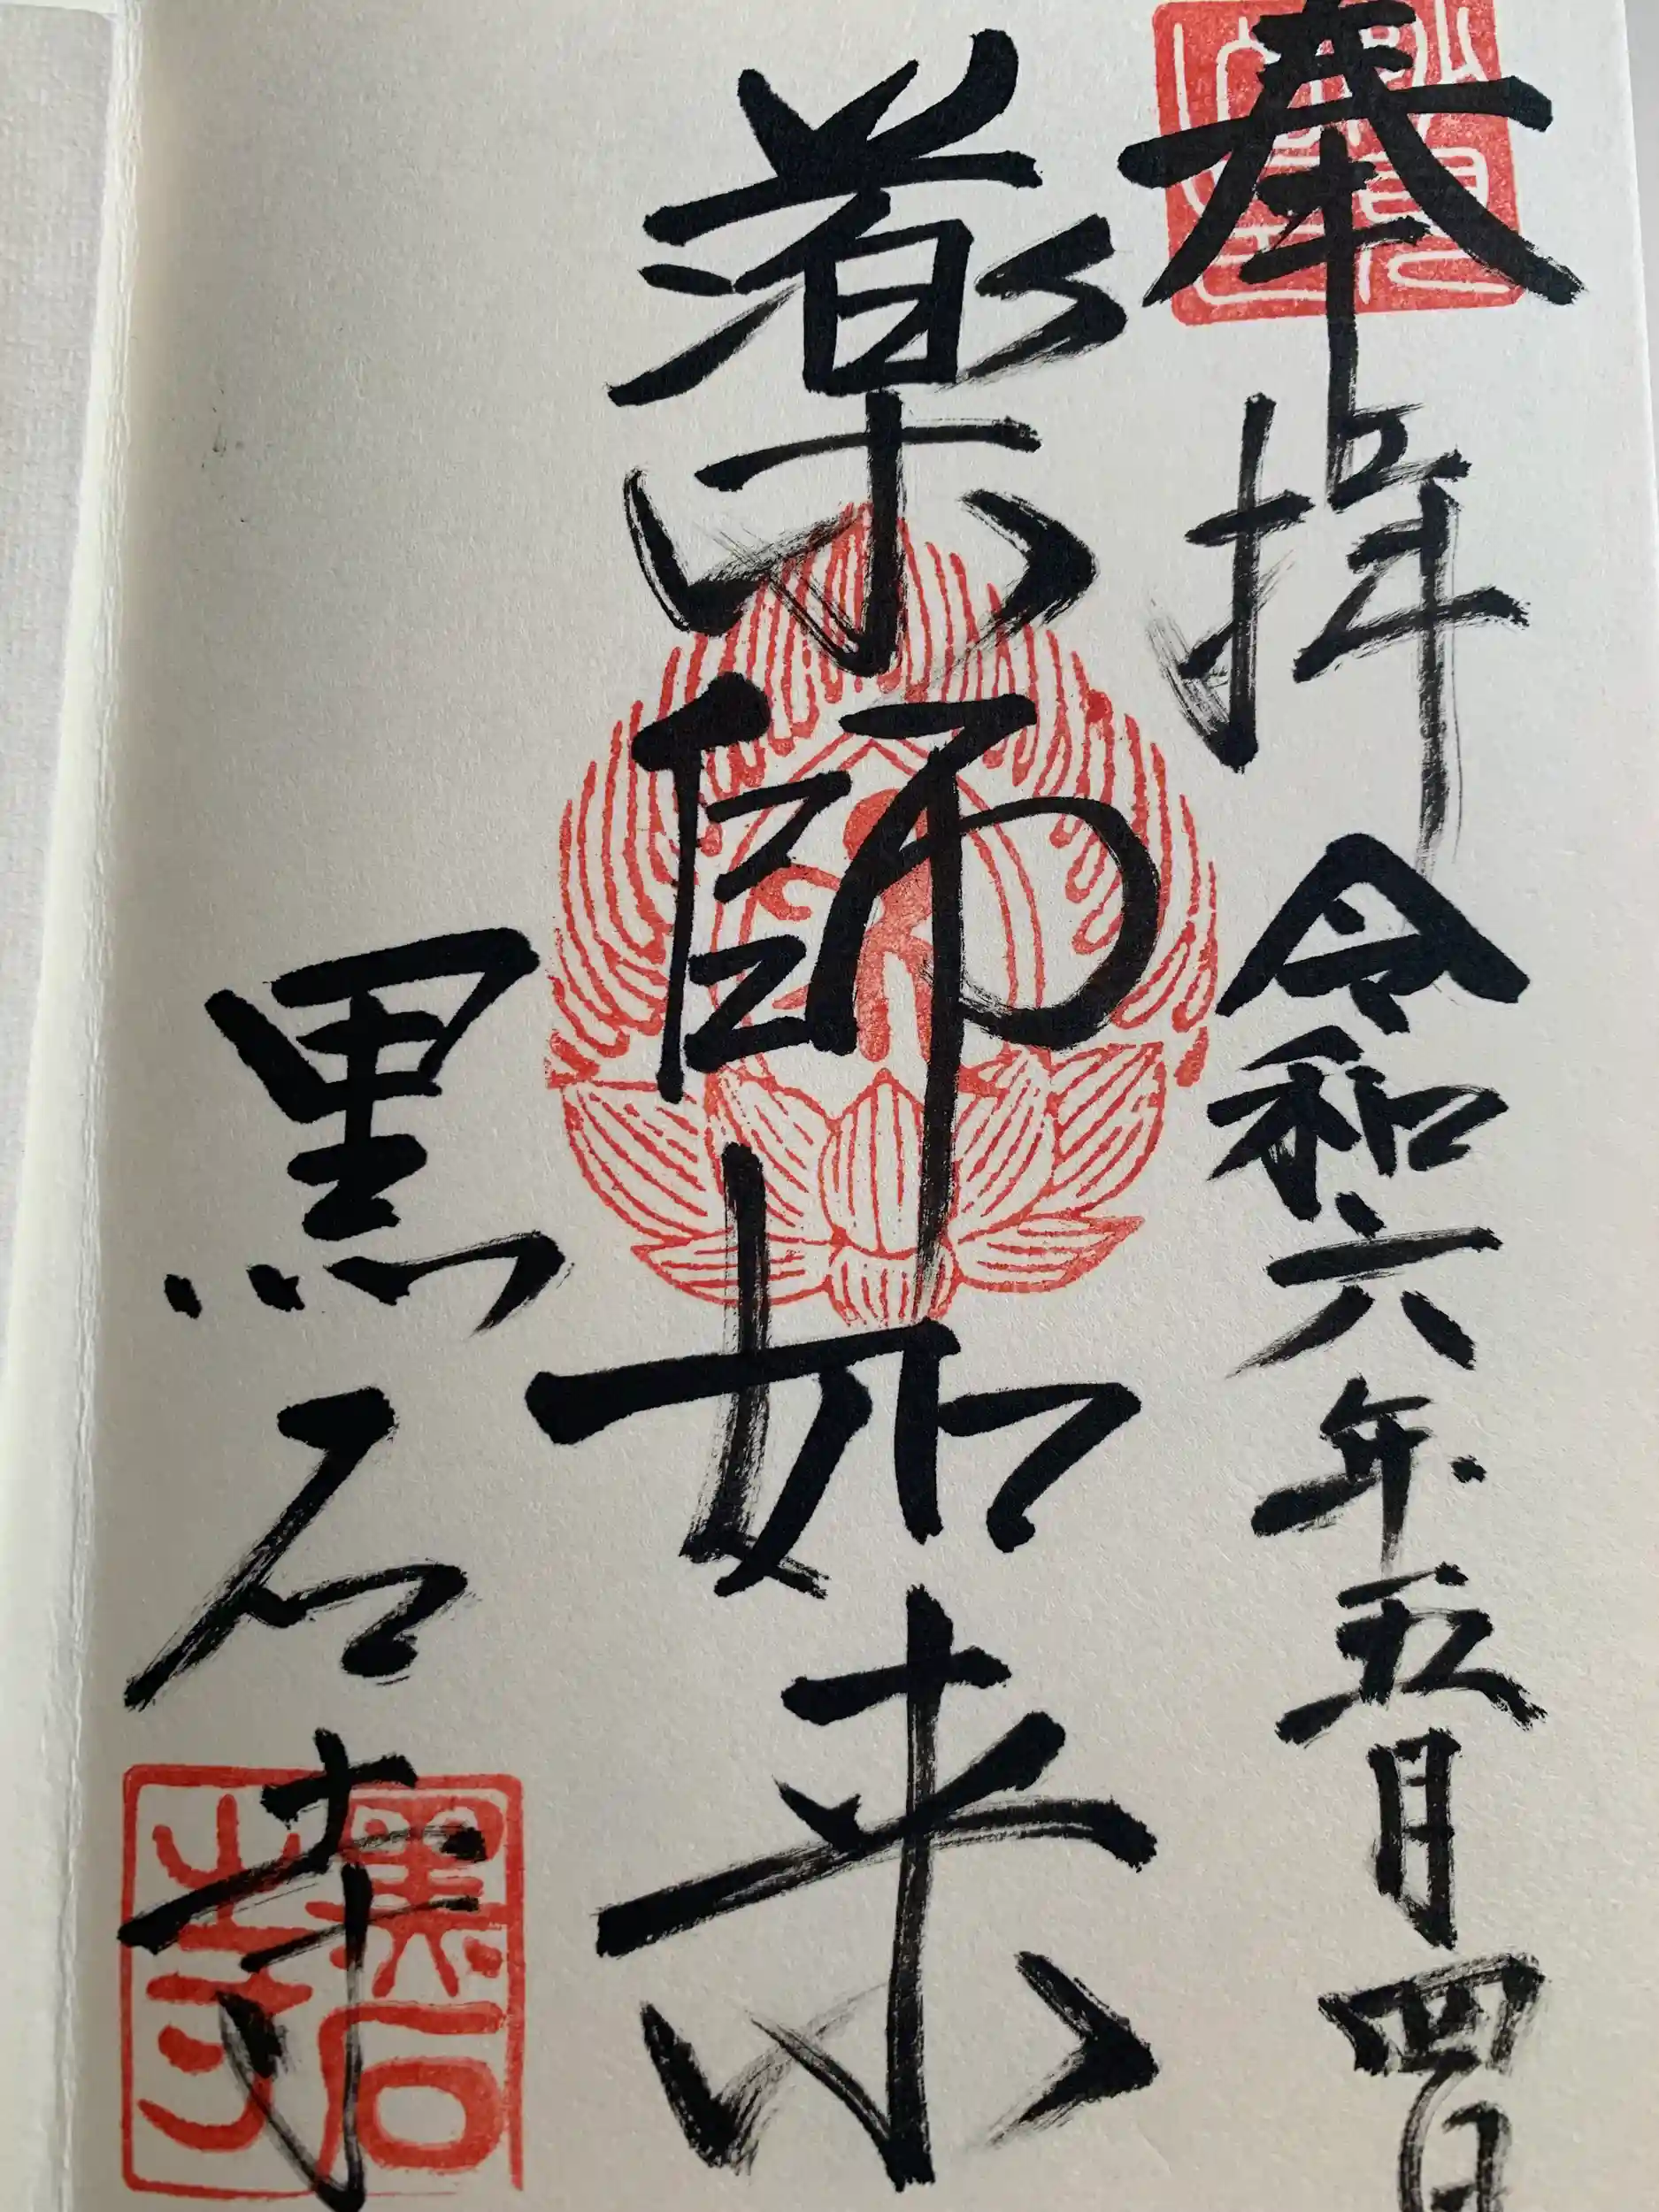 奉拝 令和六年五月四日
薬師如来
黒石寺
黒石寺